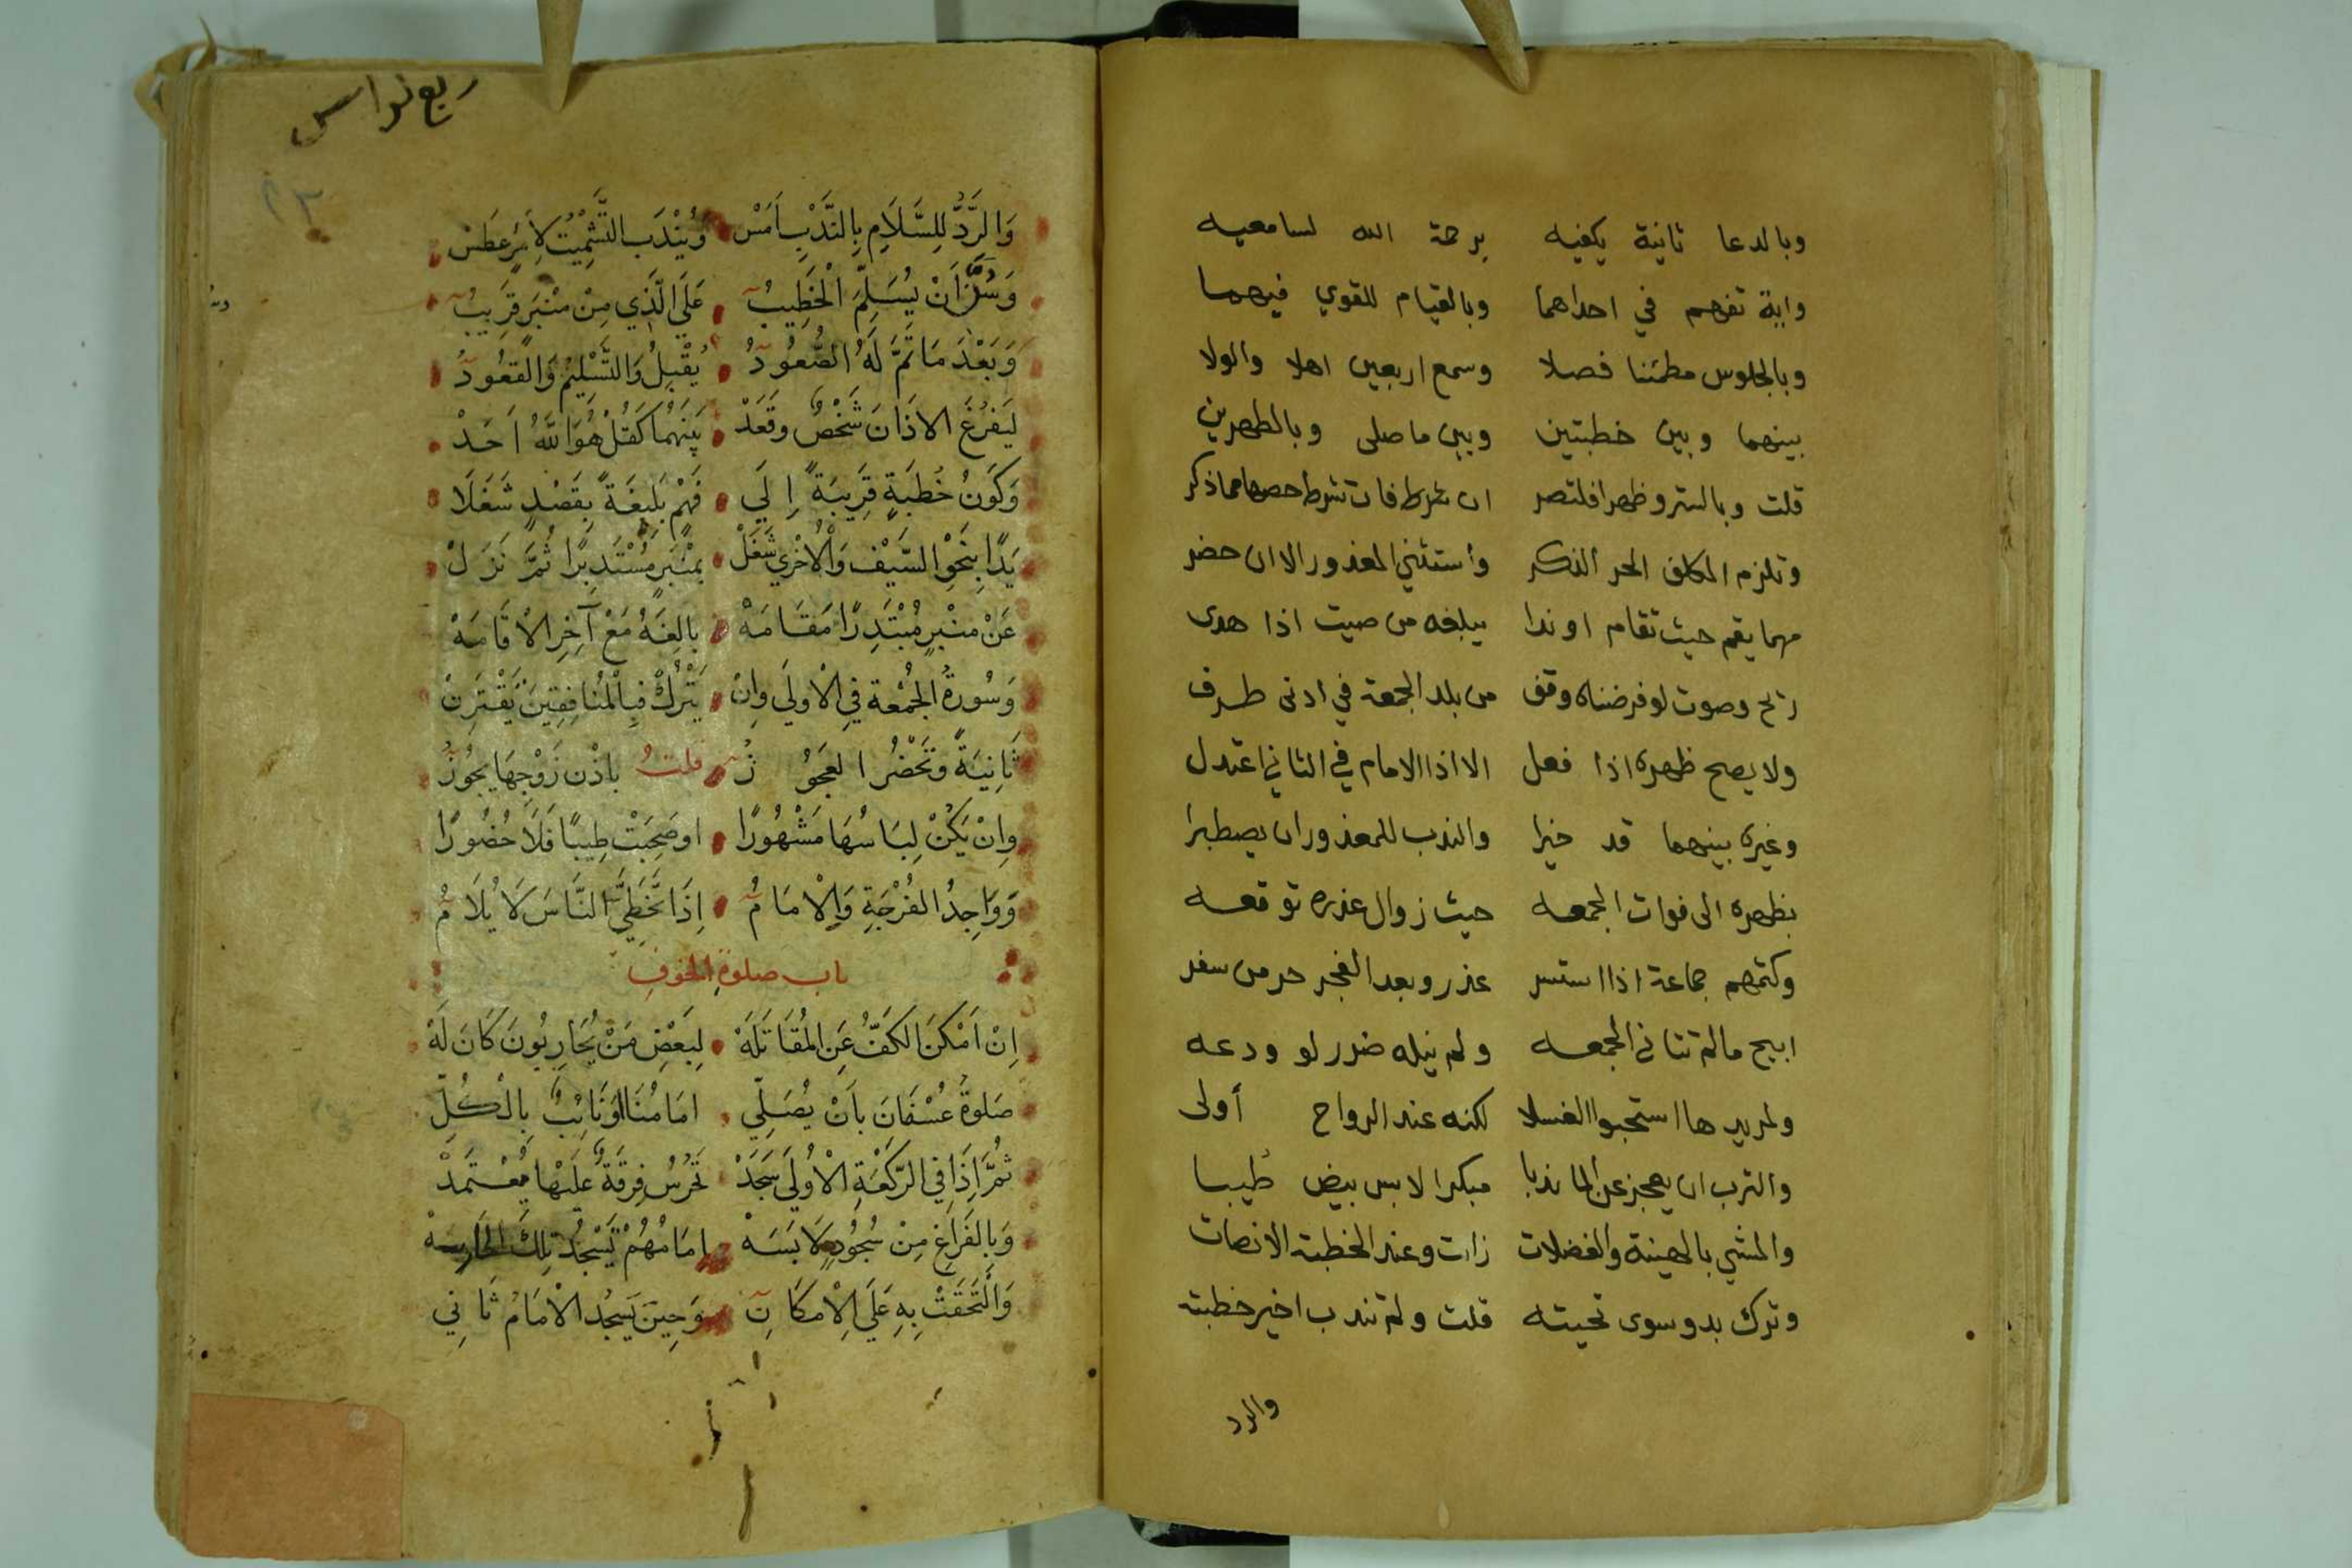 وبالدعا ثانية يكفيه برحمة الله لسامعيه
واية تفهم في احداهما وبالقيام للقوي فيهما
وبالجلوس مطمئنا فصلا وسمع اربعين اهلا والولا
بينهما وبين خطبتين وبين ما صلى وبالطهرين
قلت وبالستر وظهرا فلتصر ان شرط فات شرط حصرها مما ذكر
وتلزم المكلف الحر الذكر وأستثني المعذور الا ان حضر
مهما يقم حيث تقام او ندا يبلغه من صيت اذا هدى
ريح وصوت لو فرضناه وقف من بلد الجمعة في ادنى طرف
ولا يصح ظهره اذا فعل الا اذا الامام في الثاني اعتدل
وغيره بينهما قد خيرا والندب للمعذور ان يصطبرا
بظهره الى فوات الجمعه حيث زوال عذره توقعه
وكتمهم جماعة اذا استسر عذر وبعد الفجر حرم سفر
ابيح ما لم تتاتى الجمعه ولم ينله ضرر لو ودعه
ولمريدها استحبوا الغسلا لكنه عند الرواح أولى
والترب ان يعجز عن الما ندبا مبكرا لابس بيض طيبا
والمشي بالهينة والفضلات زالت وعند الخطبة الانصات
وترك بدو سوى تحيته قلت ولم تندب اخير خطبته
والرد
ربع نواس
٢٣
وَالرَّدُّ لِلسَّلَامِ بِالنَّدْبِ اَمَسْ وَيُنْدَبُ التَّشْمِيْتُ لِأمْرٍ عَطَسْ
وَسُنَّ اَنْ يُسَلِّمَ الْخَطِيْبُ عَلَي الَّذِي مِنْ مِنْبَرٍ قَرِيبُ
وَبَعْدَ مَا تَمَّ لَهُ الصُّعُودُ يُقْبِلُ وَالتَّسْلِيْمُ وَالْقُعُودُ
لِيَفْرُغَ الاذَانَ شَخْصٌ وقَعَدْ بَيْنَهُمَا كَقُلْ هُوَ اللَّهُ اَحَدْ
وَكَوْنُ خُطْبَةٍ قَرِيبَةً اِلَي فَهْمٍ بَلِيْغَةً بِقَصْدٍ شَغَلَا
يَدًا بِنَحْوِ السَّيْفِ وَالْاُخْرَي شَغَلْ بِمْنْبَرٍ مُسْتَدْبِرًا ثُمَّ نَزَلْ
عَنْ مِنْبَرٍ مُبْتَدِرًا مَقَامَهْ بَالِغَهُ مَعْ آخِرِ الْاِقَامَهْ
وَسُورَةُ الجُمْعَة فِي الْاولَي وَاِنْ يَتْرُكْ فَبِالْمُنَافِقِيْنَ يَقْتَرِنْ
ثَانِيَةً وتَحْضُرُ العَجُوزُ قلتُ بِاذْنِ زَوْجِهَا يَجُوزُ
وَاِنْ يَكُنْ لِبَاسُهَا مَشْهُورًا اوصَحِبَتْ طِيبًا فَلَا حُضُورًا
وَوَاجِدُ الفُرْجَةِ وَالْامَامُ اِذَا تَخَطَّي النَّاسَ لَا يُلَامُ
باب صلوة الخوفِ
اِنْ اَمْكَنَ الكَفُّ عَنِ المُقَاتَلَهْ لِبَعْضِ مَنْ يُحَارِبُونَ كَانَ لَهْ
صَلوةُ عُسْفَانَ بِاَنْ يُصَلِّي اِمَامُنَا اَوْنَائِبٌ بِالْكُلِّ
ثُمَّ اِذَا فِي الرَّكْعَةِ الْاُولَي سَجَدْ تَحْرُسُ فِرقَةٌ عَلَيْهَا يُعْتَمَدْ
وَبِالْفَرَاغِ مِنْ سُجُودٍ لَابَسَهْ اِمَامُهُمْ تَسْجُدُ تِلْكَ الْحَارِسَهْ
وَالْتَحَقَتْ بِهِ عَلَي الْاِمْكَانِ وَحِيْنَ يَسْجُدُ الْامَامُ ثَانِي